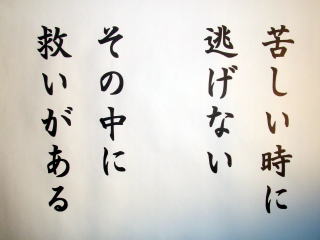 苦しい時に
逃げない
その中に
救いがある